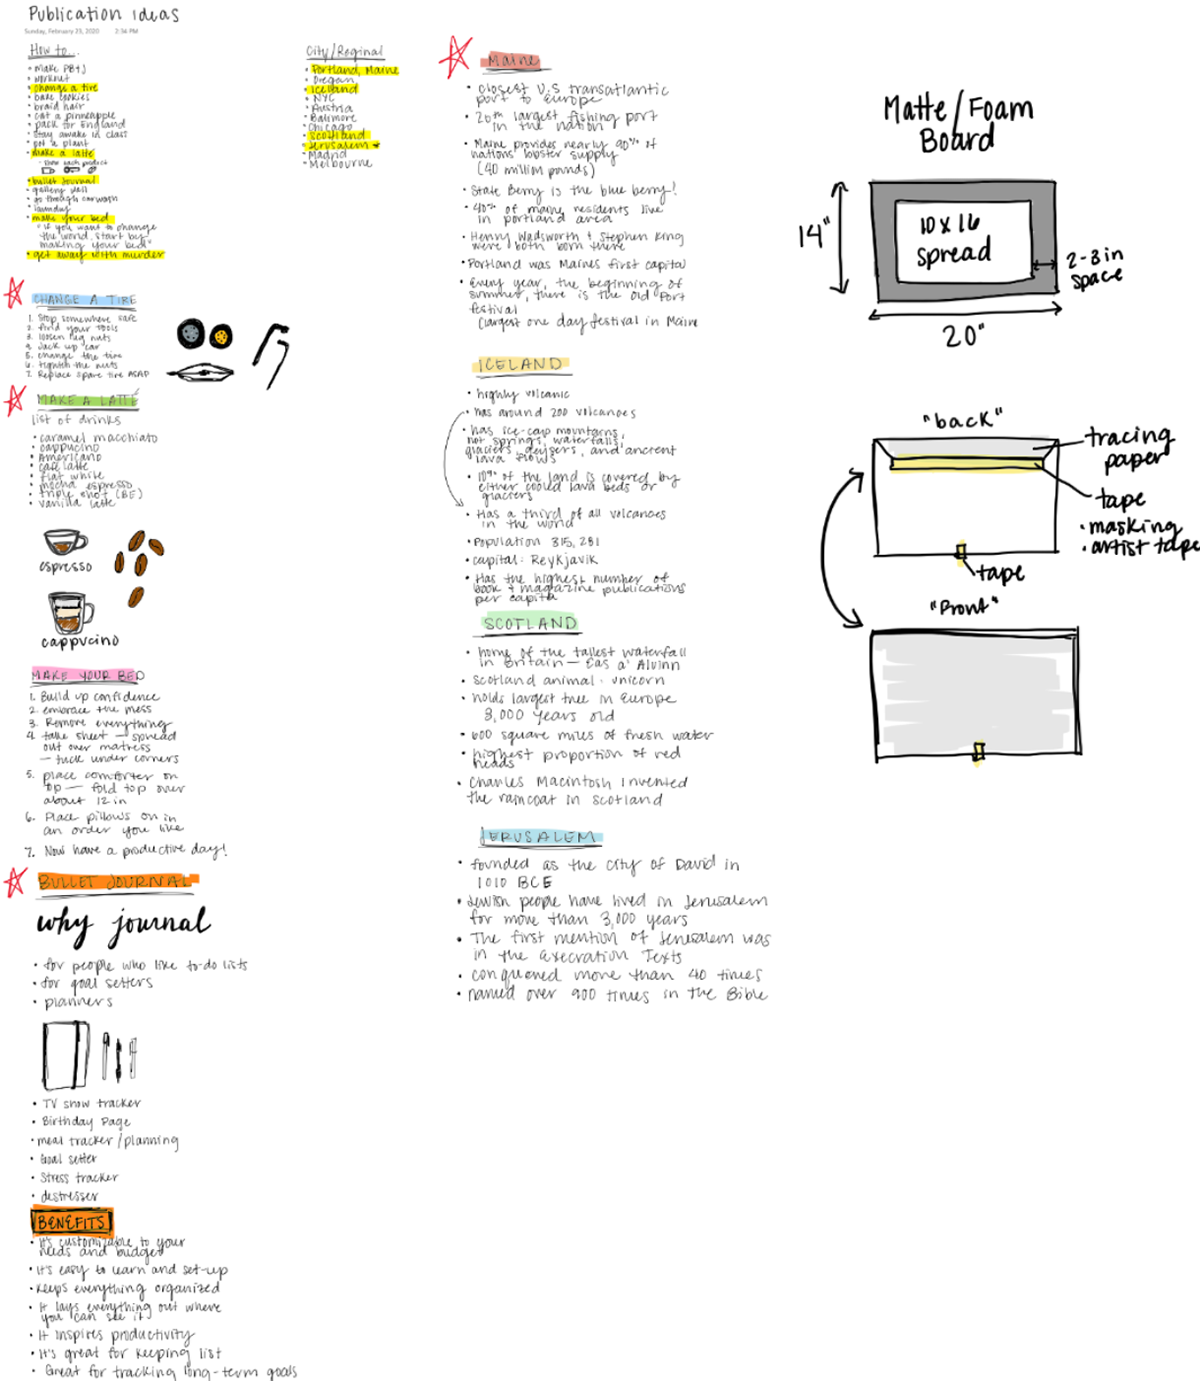 Publication ideas
Sunday, February 23, 2020 2:36 PM
How to...
• make PB+J
• change a tire
• bake cookies
• braid hair
• cut a pinneapple
• pack for England
• Stay awake in class
• pot a plant
• make a latte
• bullet journal
• gallery wall
• go through carwash
• laundry
• make your bed
"If you want to change
the world, start by
making your bed"
• get away with murder
City/Reginal
• Portland, Maine
• Oregan
• Iceland
• NYC
• Austria
• Baltimore
• Chicago
• Scotland
• Jerusalem
• Madrid
• Melbourne
CHANGE A TIRE
1. Stop somewhere safe
2. Find your tools
3. loosen lug nuts
4. Jack up car
5. change the tire
6. tighten the nuts
7. Replace spare tire ASAP
MAKE A LATTE
list of drinks
• caramel macchiato
• cappucino
• Americano
• cafe latte
• flat white
• mocha espresso
• triple shot (BE)
• vanilla latte
espresso
cappucino
MAKE YOUR BED
1. Build up confidence
2. embrace the mess
3. Remove everything
4. take sheet — spread
out over matress
— tuck under corners
5. place comforter on
top — fold top over
about 12 in
6. Place pillows on in
an order you like
7. Now have a productive day!
BULLET JOURNAL
why journal
• for people who like to-do lists
• for goal setters
• planners
• TV show tracker
• Birthday Page
• meal tracker/planning
• Goal setter
• Stress tracker
• destresser
BENEFITS
• It's customizable to your
needs and budget
• It's easy to learn and set-up
• keeps everything organized
• It lays everything out where
you can see it
• It inspires productivity
• It's great for keeping list
• Great for tracking long-term goals
MAINE
• closest U.S transatlantic
port to Europe
• 20th largest fishing port
in the nation
• Maine provides nearly 90% of
nations lobster supply
(40 million punds)
• State Berry is the blue berry!
• 40% of maine residents live
in portland area
• Henry Wadsworth + Stephen King
were both born there
• Portland was Maines first capital
• Every year, the beginning of
summer, there is the Old Port
festival
(largest one day festival in Maine
ICELAND
• highly volcanic
• has around 200 volcanoes
• has ice-cap mountains,
hot springs, waterfalls,
glaciers, geysers, and ancient
lava flows
• 10% of the land is covered by
either cooled lava beds or
glaciers
• Has a third of all volcanoes
in the world
• Population 315,281
• capital: Reykjavik
• Has the highest number of
book + magazine publications
per capita
SCOTLAND
• home of the tallest waterfall
in Britain — Eas a' Aluinn
• Scotland animal - unicorn
• holds largest tree in Europe
3,000 years old
• 600 square miles of fresh water
• highest proportion of red
heads
• Charles Macintosh Invented
the raincoat in Scotland
JERUSALEM
• founded as the city of David in
1010 BCE
• Jewish people have lived in Jerusalem
for more than 3,000 years
• The first mention of Jerusalem was
in the Execration Texts
• conquered more than 40 times
• named over 900 times in the Bible
Matte/Foam
Board
14"
10 x 16
spread
2-3 in
space
20"
"back"
tracing
paper
tape
• masking
• artist tape
tape
"Front"